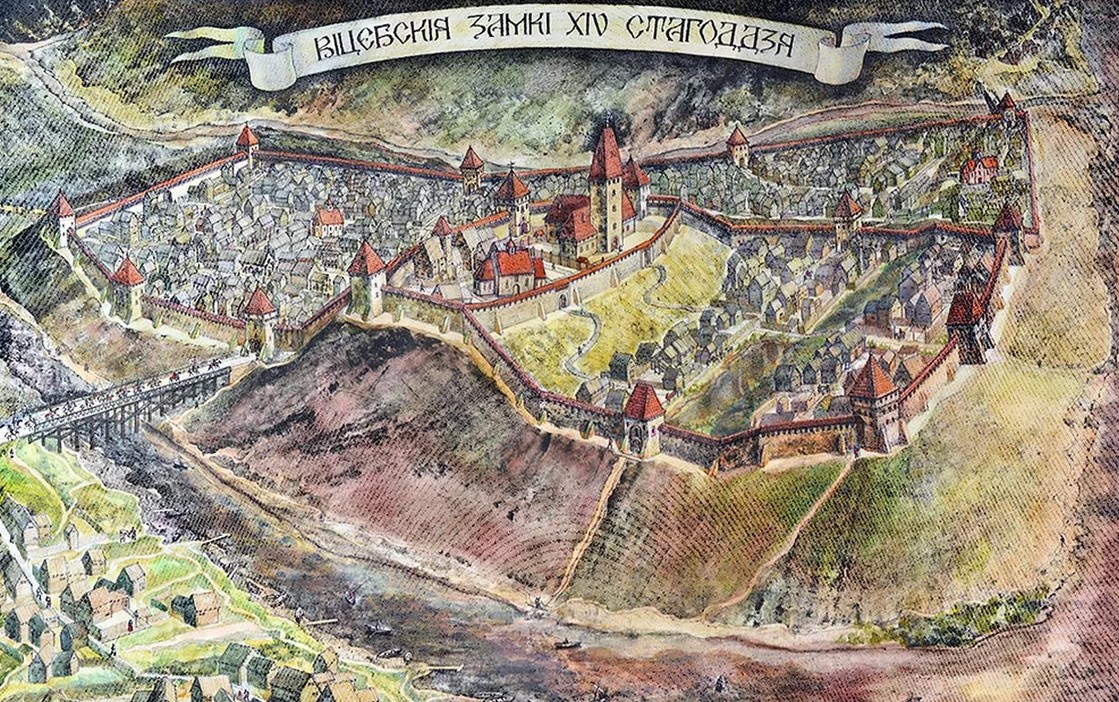 ВІЦЕБСКІЯ ЗАМКІ XIV СТАГОДДЗЯ